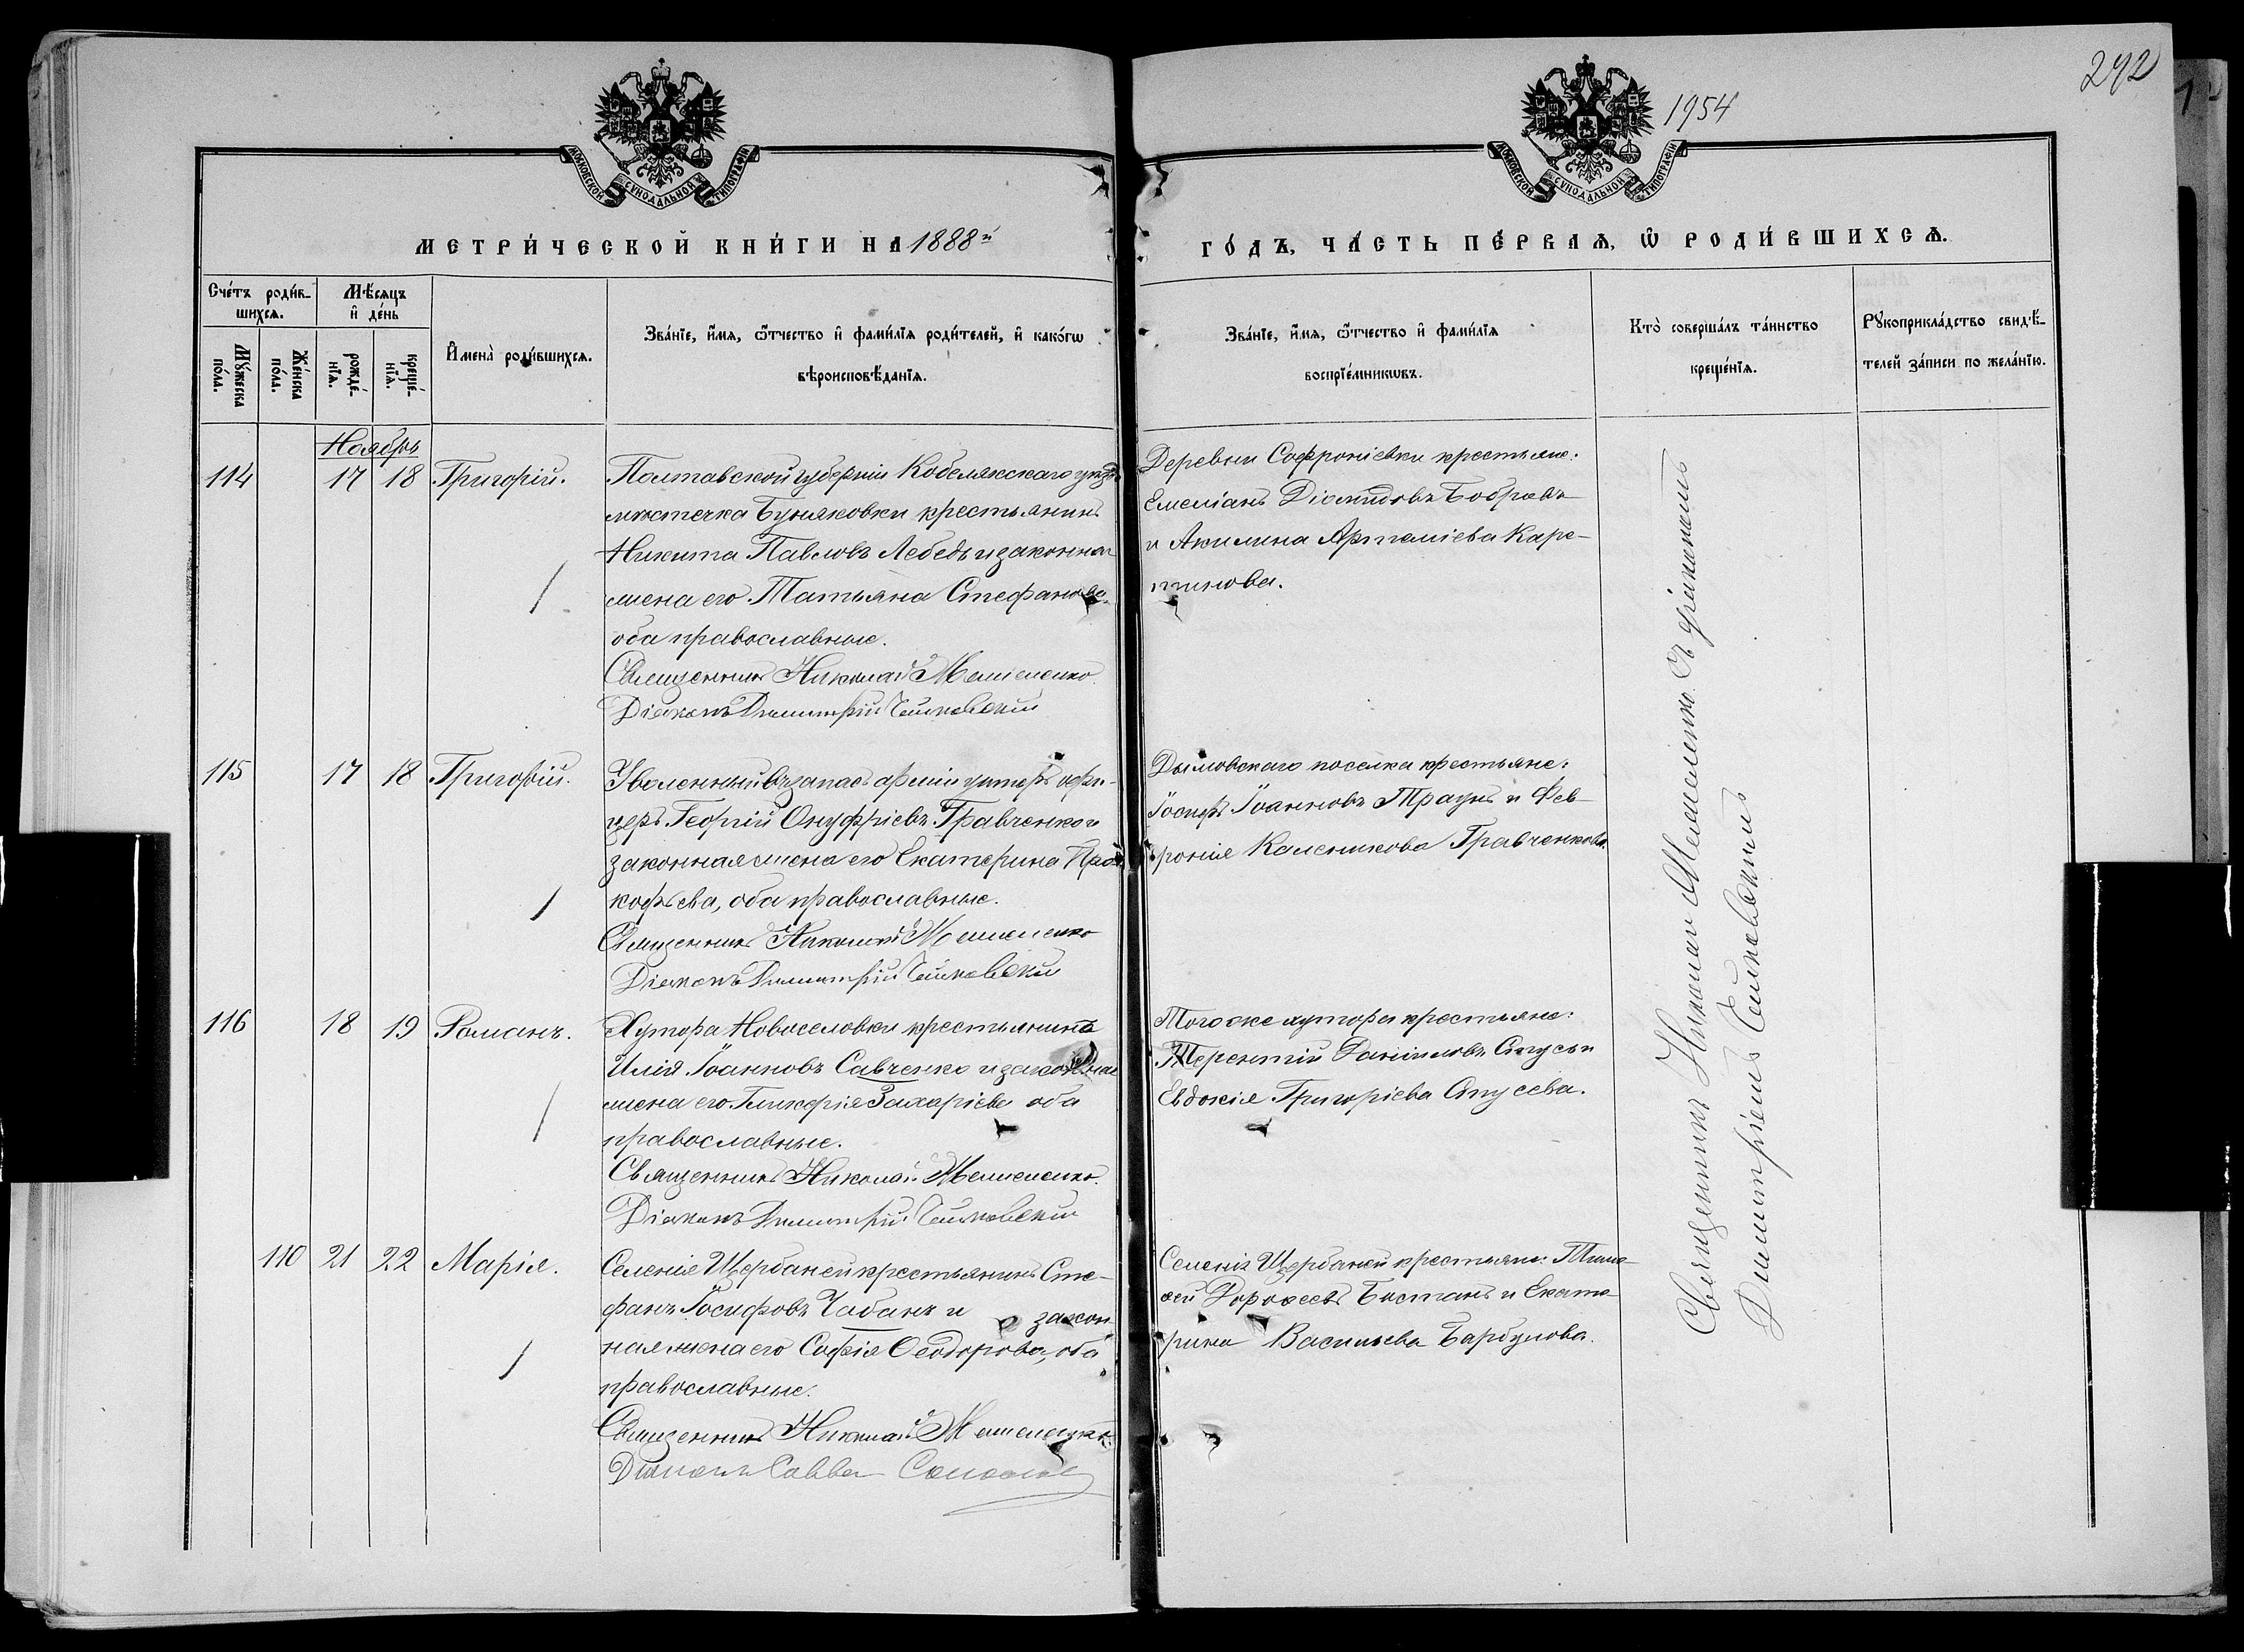 292
1954
МОСКОВСКОЙ СУНОДАЛЬНОЙ ТИПОГРАФІИ
МОСКОВСКОЙ СУНОДАЛЬНОЙ ТИПОГРАФІИ
МЕТРИ́ЧЕСКОЙ КНИ́ГИ НА 1888й
ГО́ДЪ, ЧА́СТЬ ПЕ́РВАѦ, Ѡ҆ РОДИ́ВШИХСѦ.
Сче́тъ роди́в-
шихсѧ.
Мѣ́сѧцъ
и҆ де́нь
Мꙋ́жеска
по́ла.
Же́нска
по́ла.
рожде́-
нїѧ.
креще́-
нїѧ.
И҆мена̀ роди́вшихсѧ.
Зва́нїе, и҆́мѧ, ѻ҆́тчество и҆ фами́лїѧ роди́телей, и҆ како́гѡ
вѣроисповѣ́данїѧ.
Зва́нїе, и҆́мѧ, ѻ҆́тчество и҆ фами́лїѧ
воспрїе́мникѡвъ.
Кто̀ соверша́лъ та́инство
креще́нїѧ.
Рꙋкоприкла́дство свидѣ́-
телей за́писи по жела́нїю.
Ноябрь
114 17 18 Григорій.
Полтавской губерніи Кобелякскаго уезда
местечка Буняковки крестьянинъ
Никита Павловъ Лебедь и законная
жена его Татьяна Стефанова
оба православные.
Священникъ Николай
Діаконъ Димитрій
Деревни Софроніевки крестьяне:
Емеліанъ Бобровъ
и Акилина Артеміева Каре-
тникова.
115 17 18 Григорій.
Уволенный въ запасъ арміи унтеръ офи-
церъ Георгій Онуфріевъ Гравченко и
законная жена его Екатерина Про-
кофьева, оба православные.
Священникъ Николай
Діаконъ Димитрій
Дымовскаго поселка крестьяне:
Іосифъ Іоанновъ Траунъ и Фев-
ронія Каленикова Гравченкова.
116 18 19 Романъ.
Хутора Новоселовки крестьянинъ
Илія Іоанновъ Савченко и законная
жена его Гликерія Захаріева оба
православные.
Священникъ Николай
Діаконъ Димитрій
Того же хутора крестьяне:
Терентій Даніиловъ Стусъ и
Евдокія Григоріева Стусева.
110 21 22 Марія.
Селенія Щербаней крестьянинъ Сте-
фанъ Іосифовъ Чабанъ и закон
ная жена его Софія Ѳеодорова, оба
православные.
Священникъ Николай
Діаконъ Савва
Селенія Щербаней крестьяне: Тимо-
ѳей Дороѳеевъ Бостанъ и Екате-
рина Васильева Барбулова.
Священникъ Николай съ діакономъ
Димитріемъ